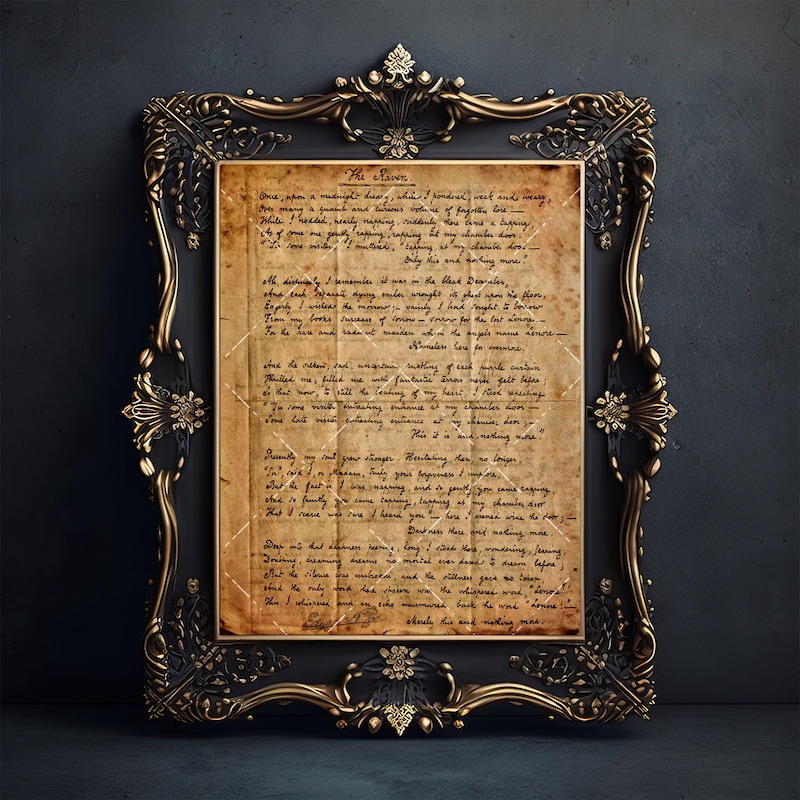 The Raven.
Once, upon a midnight dreary, while I pondered, weak and weary,
Over many a quaint and curious volume of forgotten lore —
While I nodded, nearly napping, suddenly there came a tapping,
As of some one gently rapping, rapping at my chamber door.
"'Tis some visiter," I muttered, "tapping at my chamber door —
Only this and nothing more."
Ah, distinctly I remember it was in the bleak December,
And each separate dying ember wrought its ghost upon the floor.
Eagerly I wished the morrow; — vainly I had sought to borrow
From my books surcease of sorrow — sorrow for the lost Lenore —
For the rare and radiant maiden whom the angels name Lenore —
Nameless here for evermore.
And the silken, sad, uncertain rustling of each purple curtain
Thrilled me, filled me with fantastic terrors never felt before;
So that now, to still the beating of my heart, I stood repeating
"'Tis some visiter entreating entrance at my chamber door —
Some late visiter entreating entrance at my chamber door; —
This it is and nothing more."
Presently my soul grew stronger: Hesitating then no longer,
"Sir", said I, or Madam, truly your forgiveness I implore;
But the fact is I was napping, and so gently you came rapping,
And so faintly you came tapping, tapping at my chamber door
That I scarce was sure I heard you" — here I opened wide the door; —
Darkness there and nothing more.
Deep into that darkness peering, long I stood there, wondering, fearing,
Doubting, dreaming dreams no mortal ever dared to dream before;
But the silence was unbroken, and the stillness gave no token
And the only word there spoken was the whispered word, "Lenore!"
This I whispered and an echo murmured back the word "Lenore!" —
Merely this and nothing more.